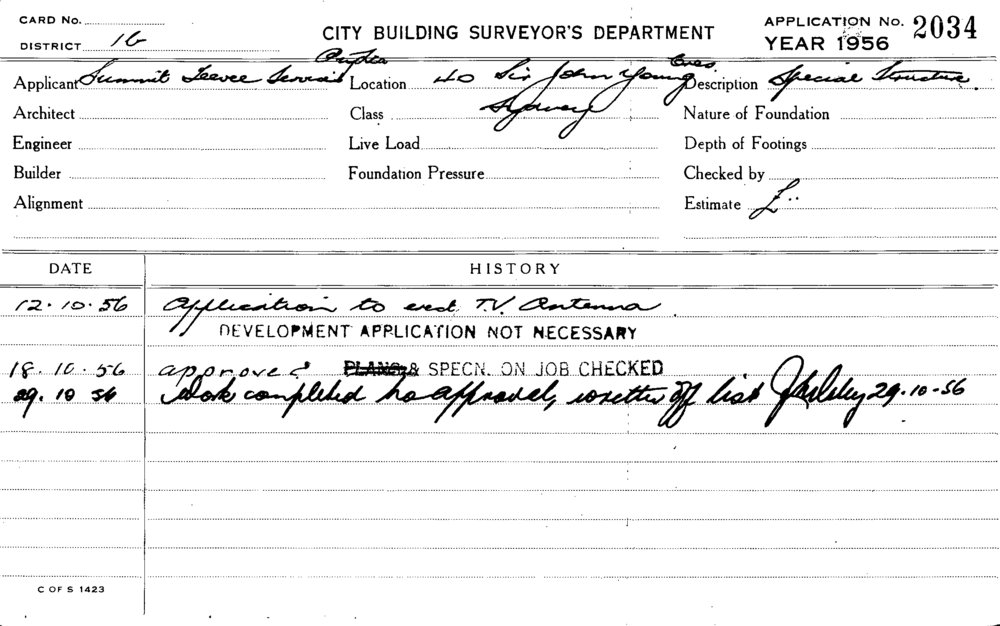 CARD No.
DISTRICT 16
CITY BUILDING SURVEYOR'S DEPARTMENT
APPLICATION No. 2034
YEAR 1956
Applicant Summit Teevee Services Pty Ltd Location 40 Sir John Young Cres Description Special Structure
Architect Class Sydney Nature of Foundation
Engineer Live Load Depth of Footings
Builder Foundation Pressure Checked by
Alignment Estimate £
DATE HISTORY
12.10.56 Application to erect T.V. Antenna
DEVELOPMENT APPLICATION NOT NECESSARY
18.10.56 approved PLANS & SPECN. ON JOB CHECKED
29.10 56 Work completed no approval, written off list 29.10-56
C OF S 1423